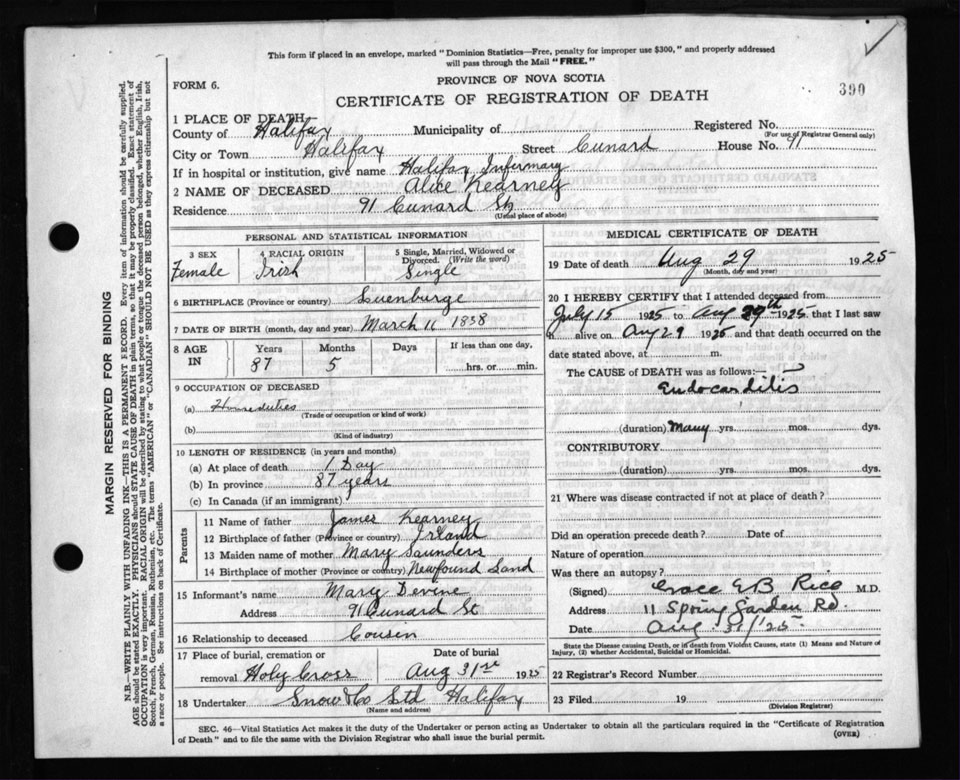 This form if placed in an envelope, marked "Dominion Statistics—Free, penalty for improper use $300," and properly addressed
will pass through the Mail "FREE."
FORM 6.
PROVINCE OF NOVA SCOTIA
390
CERTIFICATE OF REGISTRATION OF DEATH
1 PLACE OF DEATH
County of Halifax Municipality of Registered No.
(For use of Registrar General only)
City or Town Halifax Street Cunard House No. 91
If in hospital or institution, give name Halifax Infirmary
2 NAME OF DECEASED Alice Kearney
Residence 91 Cunard St
(Usual place of abode)
PERSONAL AND STATISTICAL INFORMATION
3 SEX Female
4 RACIAL ORIGIN Irish
5 Single, Married, Widowed or Divorced. (Write the word) Single
6 BIRTHPLACE (Province or country) Luenburge
7 DATE OF BIRTH (month, day and year) March 11 1838
8 AGE IN Years Months Days If less than one day,
87 5 hrs. or min.
9 OCCUPATION OF DECEASED
(a) Houseduties
(Trade or occupation or kind of work)
(b)
(Kind of industry)
10 LENGTH OF RESIDENCE (in years and months)
(a) At place of death 1 Day
(b) In province 87 years
(c) In Canada (if an immigrant)
Parents
11 Name of father James Kearney
12 Birthplace of father (Province or country) Irland
13 Maiden name of mother Mary Saunders
14 Birthplace of mother (Province or country) Newfound Land
15 Informant's name Mary Devine
Address 91 Cunard St
16 Relationship to deceased Cousin
17 Place of burial, cremation or Date of burial
removal Holy Cross Aug 31st 1925
18 Undertaker Snow & Co Ltd Halifax
(Name and address)
MEDICAL CERTIFICATE OF DEATH
19 Date of death Aug 29 1925
(Month, day and year)
20 I HEREBY CERTIFY that I attended deceased from
July 15 1925 to Aug 29th 1925 that I last saw
h alive on Aug 29 1925 and that death occurred on the
date stated above, at m.
The CAUSE OF DEATH was as follows:—
Endocarditis
(duration) Many yrs. mos. dys.
CONTRIBUTORY
(duration) yrs. mos. dys.
21 Where was disease contracted if not at place of death?
Did an operation precede death? Date of
Nature of operation
Was there an autopsy?
(Signed) Grace E B Rice M.D.
Address 11 Spring Garden Rd.
Date Aug. 31/'25
State the Disease causing Death, or in death from Violent Causes, state (1) Means and Nature of
Injury, (2) whether Accidental, Suicidal or Homicidal.
22 Registrar's Record Number
23 Filed 19
(Division Registrar)
SEC. 46—Vital Statistics Act makes it the duty of the Undertaker or person acting as Undertaker to obtain all the particulars required in the "Certificate of Registration
of Death" and to file the same with the Division Registrar who shall issue the burial permit. (OVER)
MARGIN RESERVED FOR BINDING
N.B.—WRITE PLAINLY WITH UNFADING INK—THIS IS A PERMANENT RECORD. Every item of information should be carefully supplied.
AGE should be stated EXACTLY. PHYSICIANS should STATE CAUSE OF DEATH in plain terms, so that it may be properly classified. Exact statement of
OCCUPATION is very important. RACIAL ORIGIN will be described by stating to what people or tongue the deceased person belonged, whether English, Irish,
Scotch, French, German, Russian, Ruthenian, etc. The terms "AMERICAN" or "CANADIAN" SHOULD NOT BE USED as they express citizenship but not
a race or people. See instructions on back of Certificate.